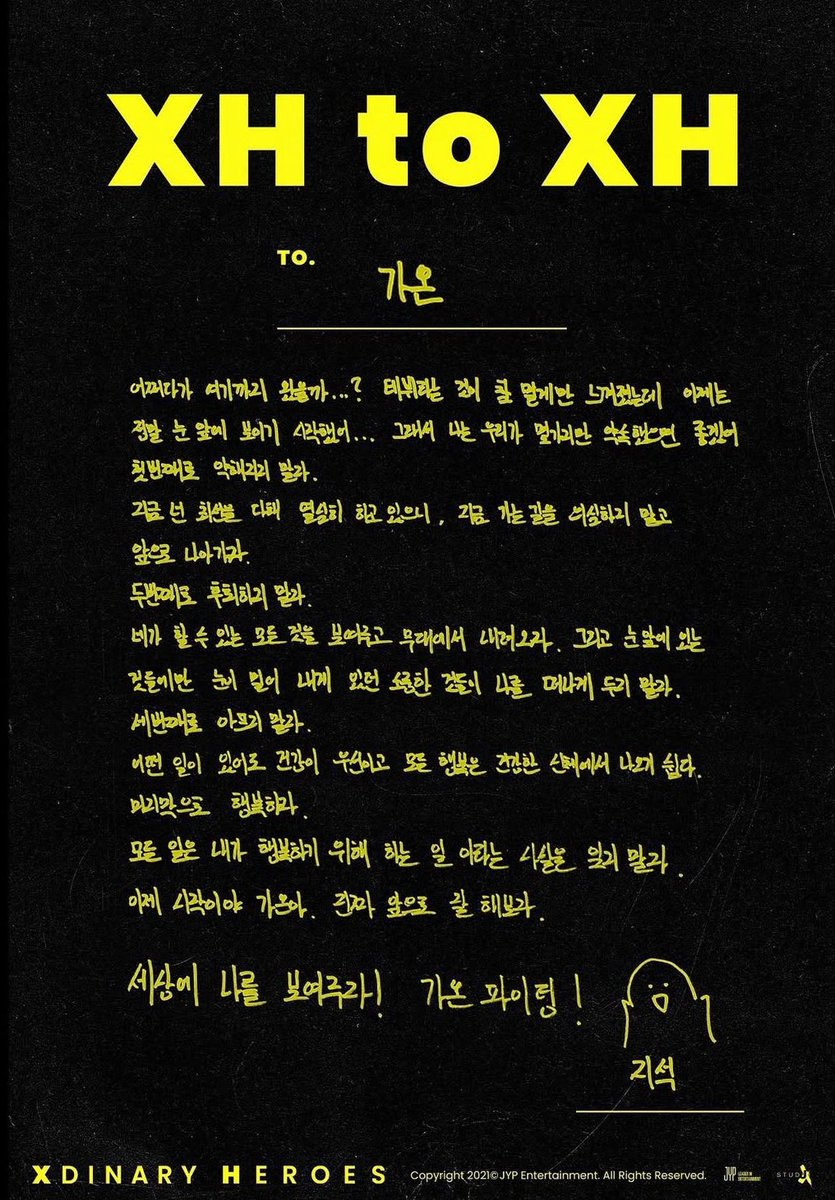 XH to XH
TO.
가온
어쩌다가 여기까지 왔을까...? 데뷔라는 것이 멀게만 느껴졌는데 이제는
정말 눈 앞에 보이기 시작했어... 그래서 나는 우리가 몇가지만 약속했으면 좋겠어
첫번째로 약해지지 말라.
지금 넌 최선을 다해 열심히 하고 있으니, 지금 가는 길을 의심하지 말고
앞으로 나아가라.
두번째로 후회하지 말라.
네가 할 수 있는 모든 것을 보여주고 무대에서 내려오라. 그리고 눈 앞에 있는
것들에만 눈이 멀어 내게 있던 소중한 것들이 나를 떠나게 두지 말라.
세번째로 아프지 말라.
어떤 일이 있어도 건강이 우선이고 모든 행복은 건강한 상태에서 나오기 쉽다.
마지막으로 행복하라.
모든 일은 내가 행복하기 위해 하는 일 이라는 사실을 잊지 말라.
이제 시작이야 가온아. 진짜 앞으로 잘 해보자.
세상에 나를 보여주라! 가온 파이팅!
지석
XDINARY HEROES Copyright 2021© JYP Entertainment. All Rights Reserved. JYP LEADER IN ENTERTAINMENT STUDIO